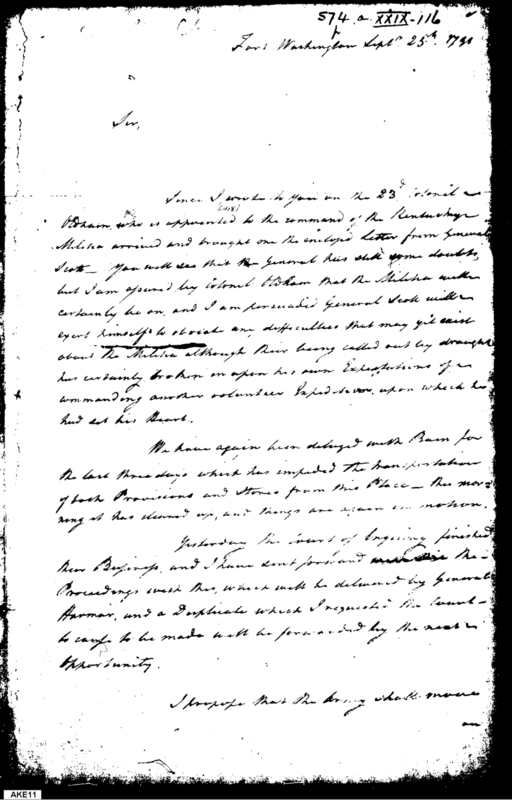 574 a XXIX-116
Fort Washington Septr. 25th. 1791
Sir,
Since I wrote to you on the 23d Colonel
Oldham, who is appointed to the command of the Kentuckye
Militia arrived and brought me the enclosed Letter from General
Scott — You will see that the General has still some doubts,
but I am assured by Colonel Oldham that the Militia will
certainly be on, and I am persuaded General Scott will
exert himself to obviate any difficulties that may yet exist
about the Militia although their being called out by draught
has certainly broken in upon his own Expectations of
commanding another volunteer Expedition, upon which he
had set his Heart.
We have again been deluged with Rain for
the last three days which has impeded the transportation
of both Provisions and Stores from this Place — this mor=
ning it has cleared up, and things are again in motion.
Yesterday the Court of Inquiry finished
their Business, and I have sent forward the
Proceedings with this, which will be delivered by General
Harmar, and a Duplicate which I requested the Court
to cause to be made will be forwarded by the next
Opportunity.
I propose that the Army shall move
on
AKE11